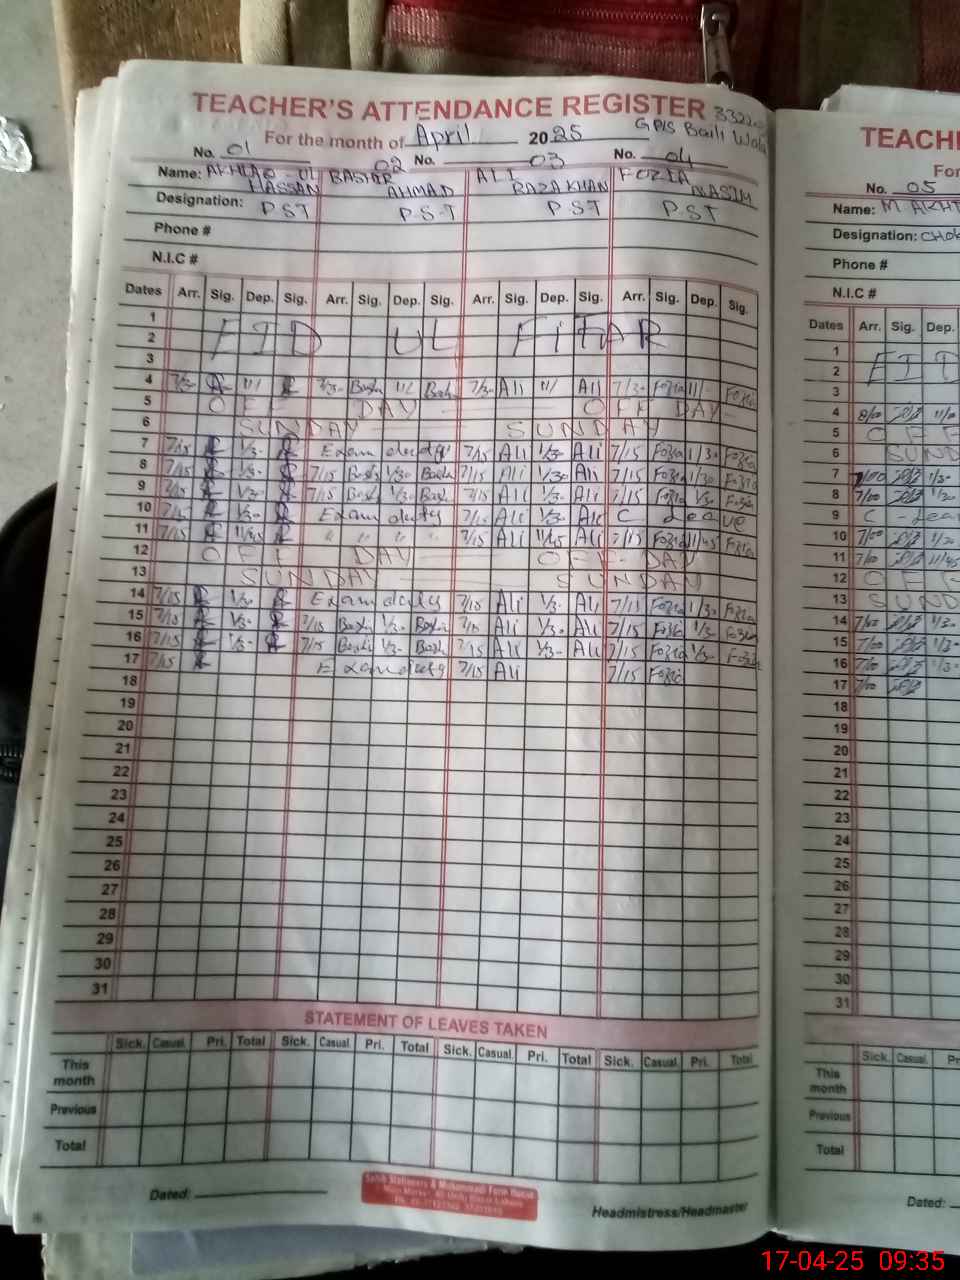 TEACHER'S ATTENDANCE REGISTER
For the month of April 2025 GPS Baili Wala
No. 01 02 No. 03 No. 04
Name: AKHLAQ-UL HASSAN BASHIR AHMAD ALI RAZA KHAN FOZIA NASIM
Designation: P.ST P.S.T P.ST P.ST
Phone #
N.I.C #
Dates Arr. Sig. Dep. Sig. Arr. Sig. Dep. Sig. Arr. Sig. Dep. Sig. Arr. Sig. Dep. Sig.
1
2 EID UL FITAR
3
4 7/30 11/ 7/30 Bashi 11/ Bashi 7/30 Ali 11/ Ali 7/30 Fozia 11/ Fozia
5 OFF DAY OFF DAY
6 SUNDAY SUNDAY
7 7/15 1/30 Exam duty 7/15 Ali 1/30 Ali 7/15 Fozia 1/30 Fozia
8 7/15 1/30 7/15 Bashi 1/30 Bashi 7/15 Ali 1/30 Ali 7/15 Fozia 1/30 Fozia
9 7/15 1/30 7/15 Bashi 1/30 Bashi 7/15 Ali 1/30 Ali 7/15 Fozia 1/30 Fozia
10 7/15 1/30 Exam duty 7/15 Ali 1/30 Ali C Leave
11 7/15 11/45 " " " " 7/15 Ali 11/45 Ali 7/15 Fozia 11/45 Fozia
12 OFF DAY OFF DAY
13 SUNDAY SUNDAY
14 7/15 1/30 Exam duty 7/15 Ali 1/30 Ali 7/15 Fozia 1/30 Fozia
15 7/15 1/30 7/15 Bashi 1/30 Bashi 7/15 Ali 1/30 Ali 7/15 Fozia 1/30 Fozia
16 7/15 1/30 7/15 Bashi 1/30 Bashi 7/15 Ali 1/30 Ali 7/15 Fozia 1/30 Fozia
17 7/15 Exam duty 7/15 Ali 7/15 Fozia
18
19
20
21
22
23
24
25
26
27
28
29
30
31
STATEMENT OF LEAVES TAKEN
Sick. Casual. Pri. Total Sick. Casual. Pri. Total Sick. Casual. Pri. Total Sick. Casual. Pri. Total
This month
Previous
Total
Dated:
Headmistress/Headmaster
TEACH
For
No. 05
Name: M. AKHT
Designation: CHOK
Phone #
N.I.C #
Dates Arr. Sig. Dep.
1
2 EID
3
4 8/00 11/0
5 OFF
6 SUND
7 7/00 1/30
8 7/00 1/30
9 C Lea
10 7/00 1/30
11 7/00 11/45
12 OFF
13 SUND
14 7/00 1/30
15 7/00 1/30
16 7/00 1/30
17 7/00
18
19
20
21
22
23
24
25
26
27
28
29
30
31
Sick. Casual. Pr
This month
Previous
Total
Dated:
17-04-25 09:35